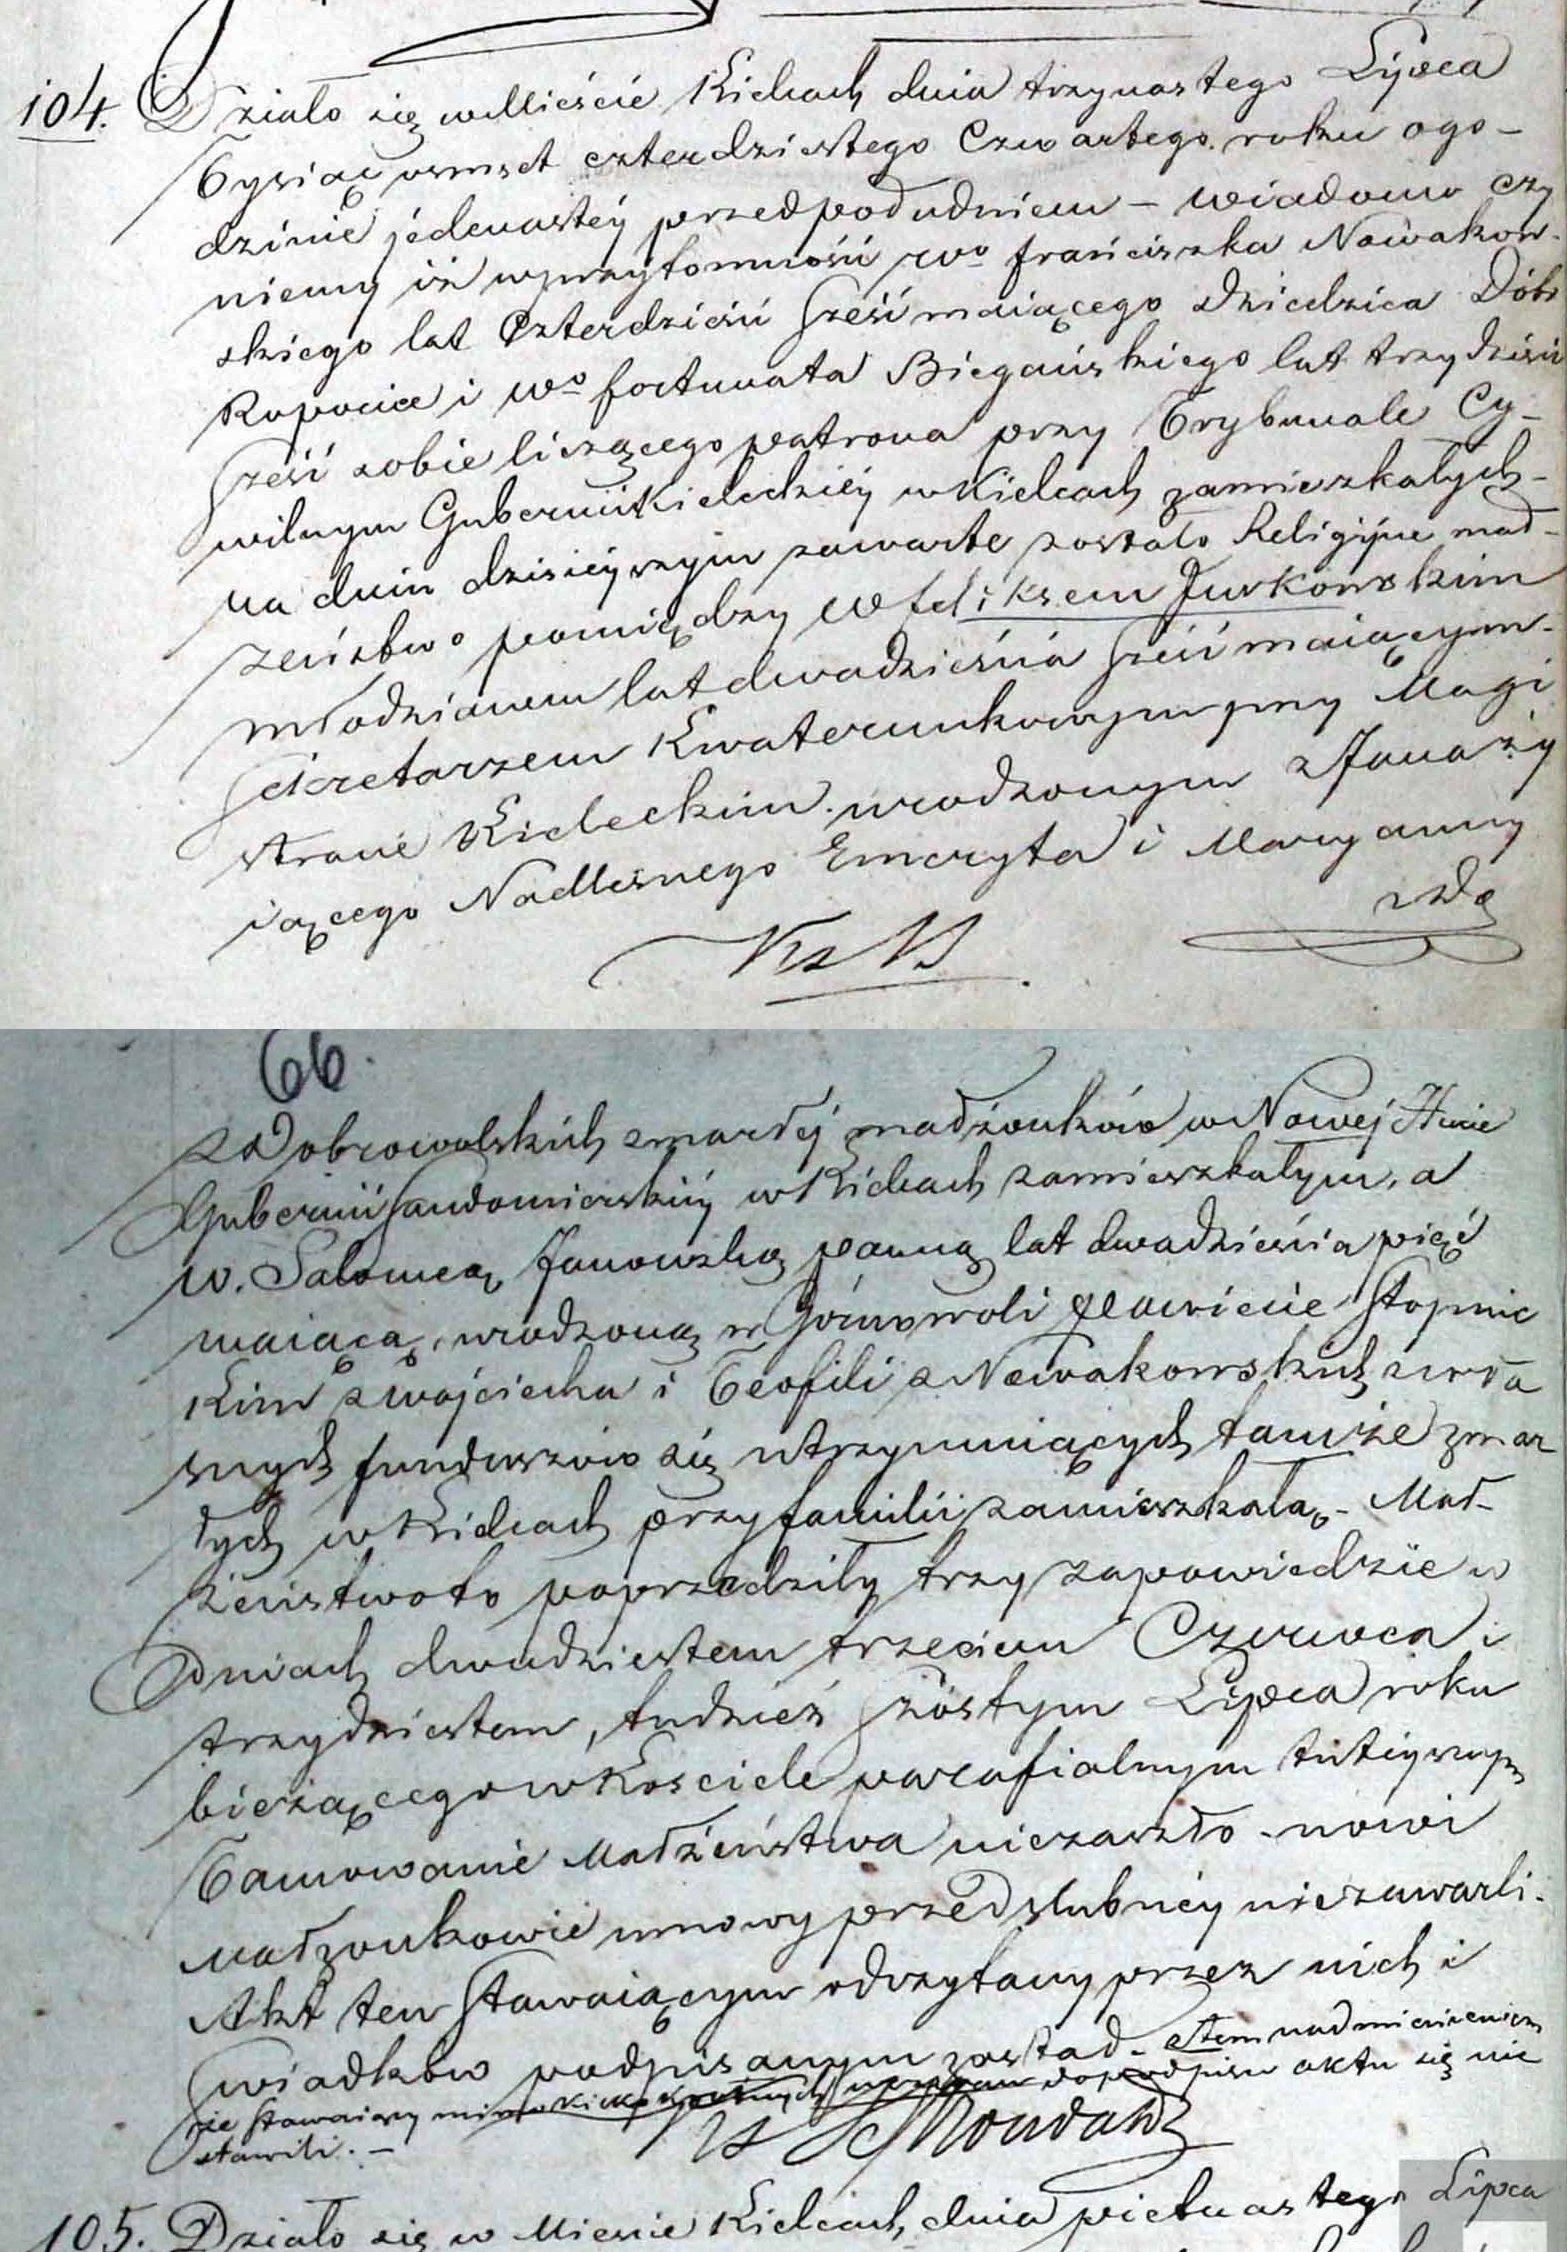 104. Działo się w Mieście Kielcach dnia trzynastego Lipca
Tysiąc osmset czterdziestego Czwartego roku ogo-
dzinie jedenastéy przedpołudniem – wiadomo czy
niemy iż wprzytomności Wo Franciszka Nowakow-
skiego lat Czterdzieści sześć maiącego dziedzica Dóbr
i Wo Fortunata Biegańskiego lat trzydzieści
sześć sobie liczącego patrona przy Trybunale Cy-
wilnym Gubernii Kieleckiéy w Kielcach zamieszkałych-
na dniu dzisieyszym zawarte zostało Religijne mał-
żeństwo pomiędzy W Feliksem Jurkowskim
młodzianem lat dwadzieścia sześć maiącym-
Sekretarzem Kwaterunkowym przy Magi
stracie Kieleckim. urodzonym z Jana ży
iącego Nadleśnego Emeryta i Maryanny
z Do
66.
z Dobrowolskich zmarłéj małżonków w Nowej
Gubernii Sandomierskiéy w Kielcach zamieszkałym, a
W. Salomeą Janowską panną lat dwadzieścia pięć
maiącą, urodzoną w Górnowoli Powiecie Stopnic
kim z Wojciecha i Teofili z Nowakowskich z wła
snych funduszów się utrzymuiących tamże zmar
łych w Kielcach przy familii zamieszkałą.- Mał-
żeństwo to poprzedziły trzy zapowiedzie w
Dniach dwudziestem trzecim Czerwca i
trzydziestem, tudzież szóstym Lipca roku
bieżącego w Kościele parafialnym tutéyszym
Tamowanie Małżeństwa niezaszło - nowi
Małżonkowie umowy przedślubnéy niezawarli.
Akt ten Stawaiącym odczytany przez nich i
Świadków podpisanym został- z tem nadmienieniem
że Stawaiący mimo do podpisu aktu się nie
stawili. –
105. Działo się w Mieście Kielcach, dnia piętnastego Lipca